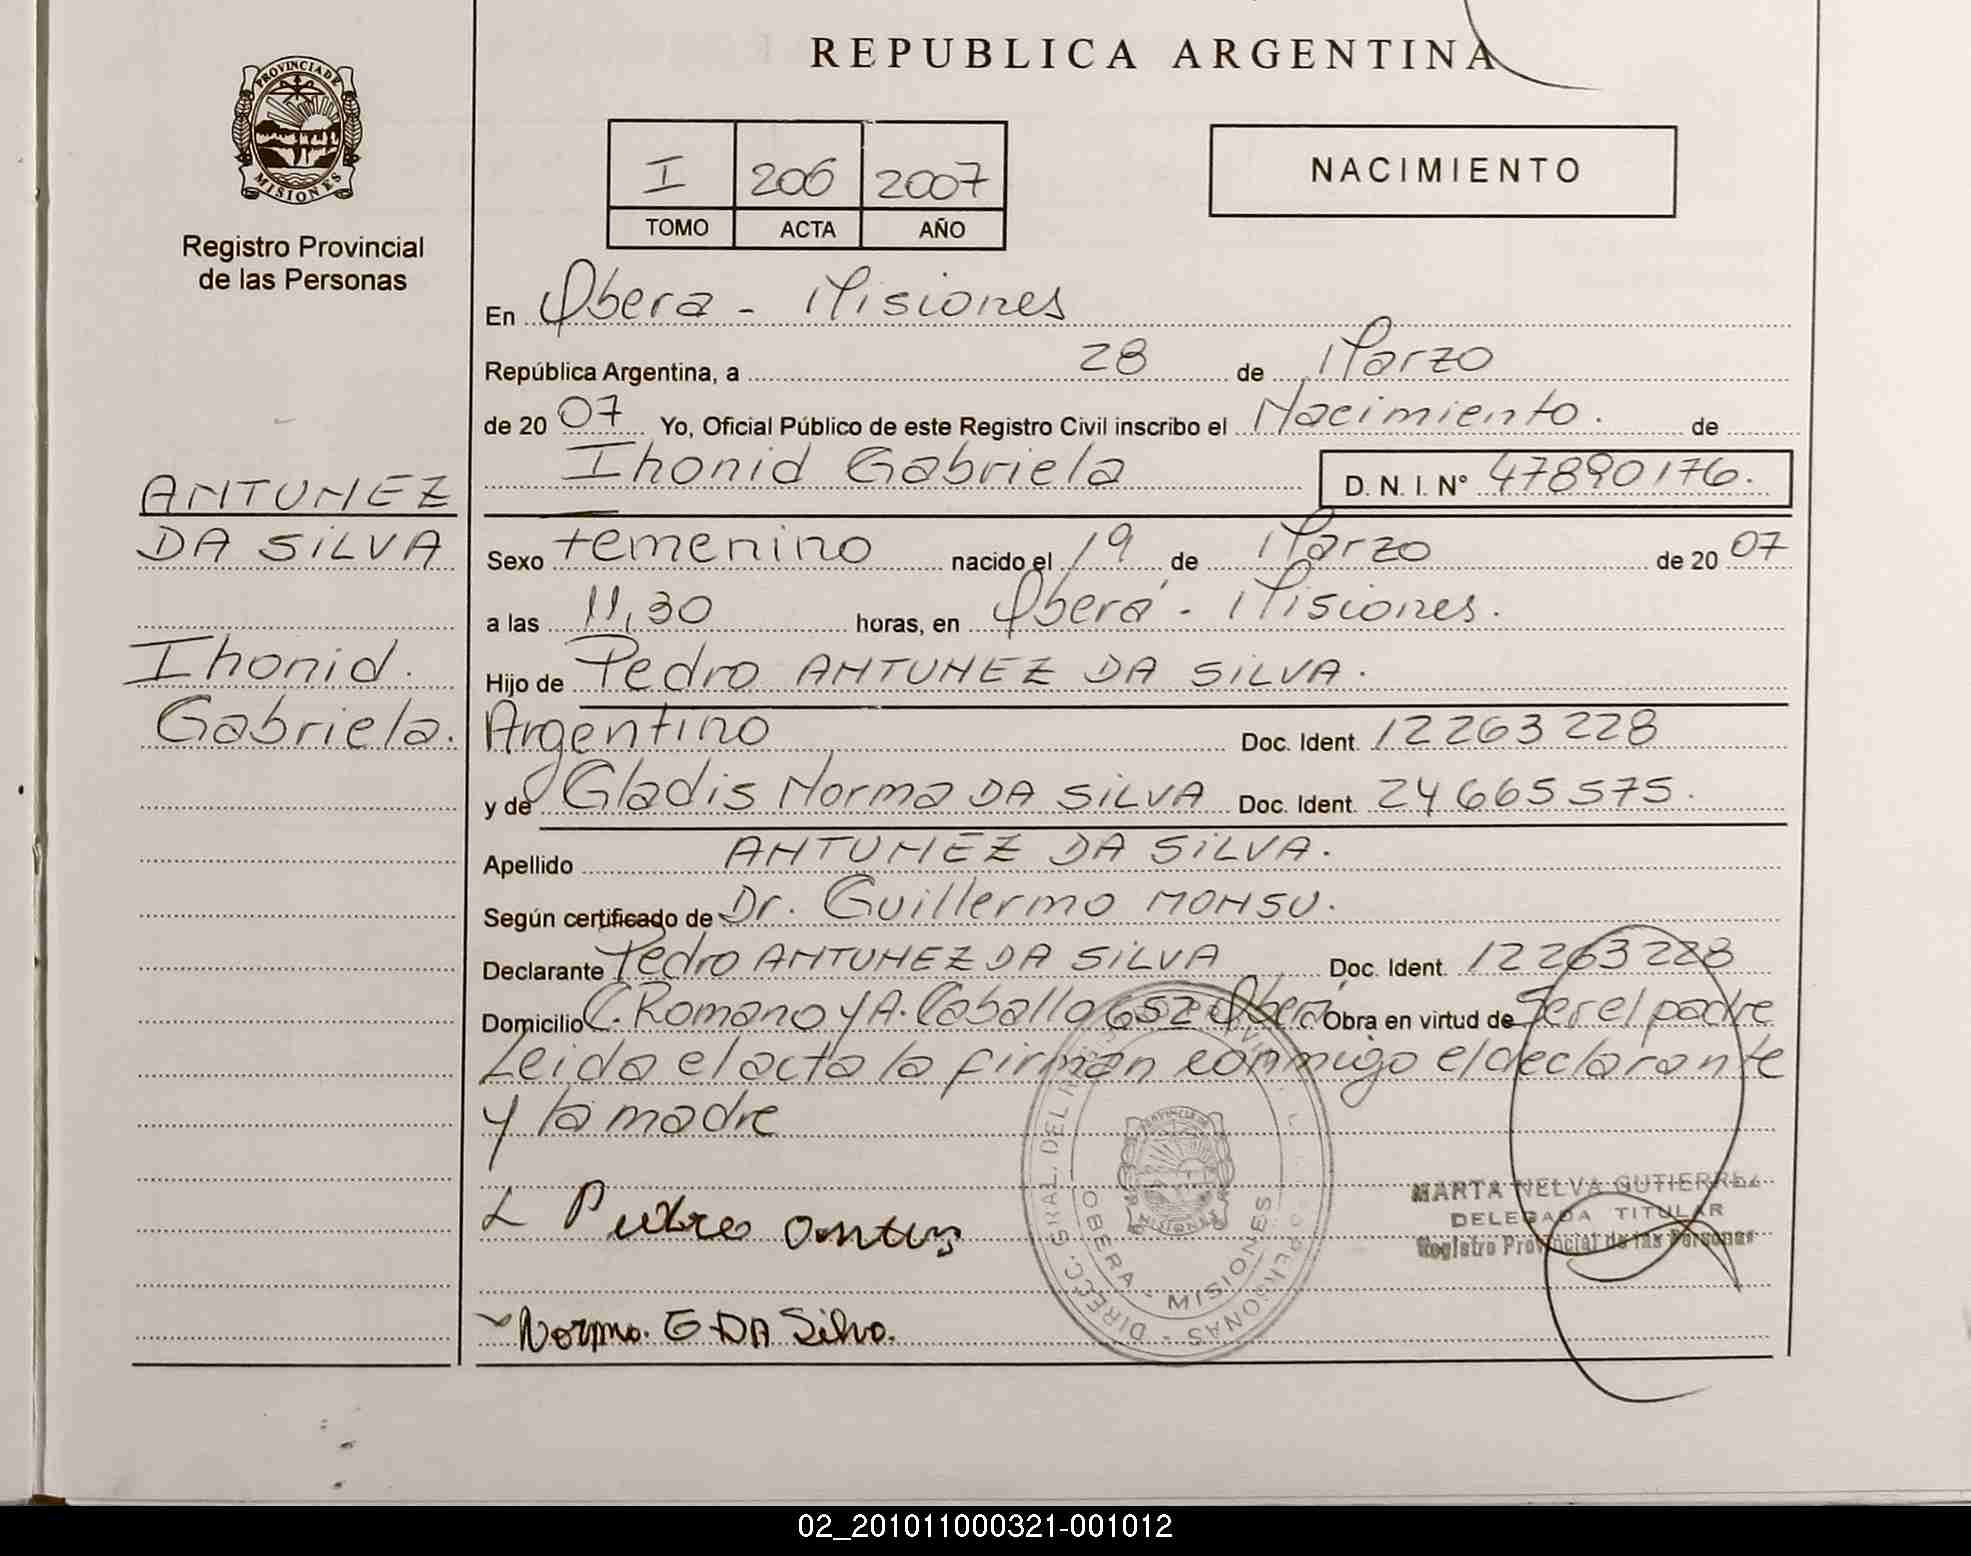 REPUBLICA ARGENTINA
PROVINCIA DE
MISIONES
Registro Provincial
de las Personas
I 206 2007
TOMO ACTA AÑO
NACIMIENTO
En Obera - Misiones
República Argentina, a 28 de Marzo
de 20 07 Yo, Oficial Público de este Registro Civil inscribo el Nacimiento. de
Ihonid Gabriela D. N. I. N° 47890176.
ANTUNEZ
DA SiLVA
Ihonid.
Gabriela.
Sexo Femenino nacido el 19 de Marzo de 20 07
a las 11,30 horas, en Oberá - Misiones.
Hijo de Pedro ANTUNEZ DA SiLVA.
Argentino Doc. Ident. 12263228
y de Gladis Norma DA SiLVA Doc. Ident. 24665575.
Apellido ANTUNEZ DA SiLVA.
Según certificado de Dr. Guillermo MONSU.
Declarante Pedro ANTUNEZ DA SiLVA Doc. Ident. 12263228
Domicilio C. Romano y A. Caballo 652 Oberá Obra en virtud de Ser el padre
Leida el acta la firman conmigo el declarante
y la madre
Norma. G DA Silva.
OBERA - MISIONES
MARTA NELVA GUTIERREZ
DELEGADA TITULAR
Registro Provincial de las Personas
02_201011000321-001012